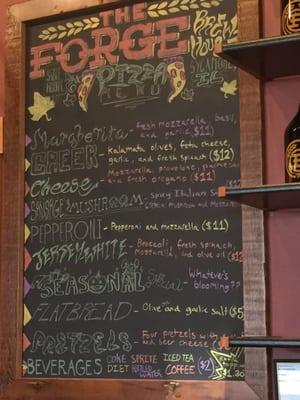 THE
FORGE
BREW
HOUSE
PIZZA
MENU
SYCAMORE
IL
Margherita - fresh mozzarella, basil,
and garlic $11
GREEK Kalamata olives, feta cheese,
garlic, and fresh spinach ($12)
Cheese Mozzarella, provolone, parmesan
and fresh oregano ($11)
SAUSAGE MUSHROOM Spicy Italian
PIPPERONI - Pepperoni and mozzarella ($11)
JERSEY WHITE - Broccoli, fresh spinach,
Mozzarella, and olive oil ($12
SEASONAL Special Whatever's
blooming??
FLATBREAD - Olive and garlic salt ($5
PRETZELS Four pretzels with
and beer cheese
BEVERAGES COKE SPRITE ICED TEA
DIET WATER COFFEE ($2)